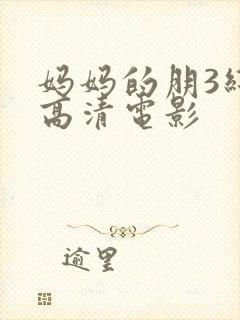 妈妈的朋3
高清电影
逾里